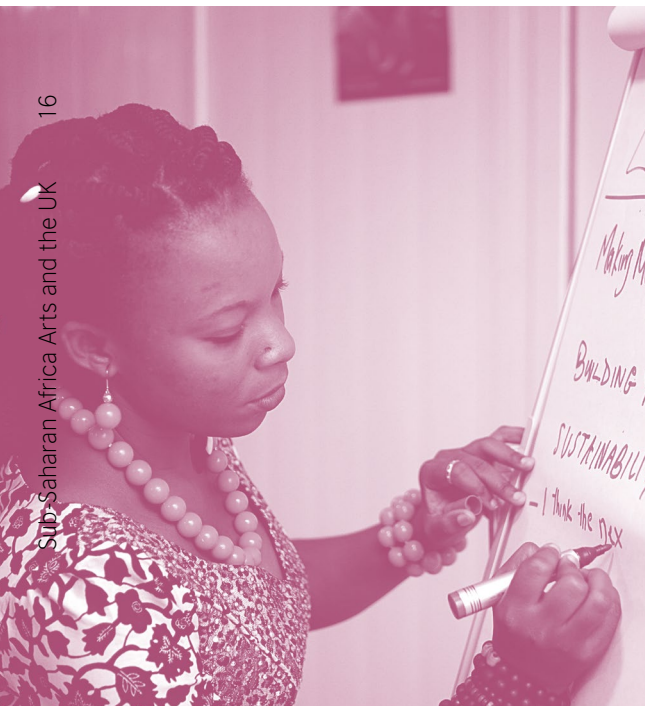 Sub-Saharan Africa Arts and the UK 16
Making
BUILDING
SUSTAINABILI
- I think the nex